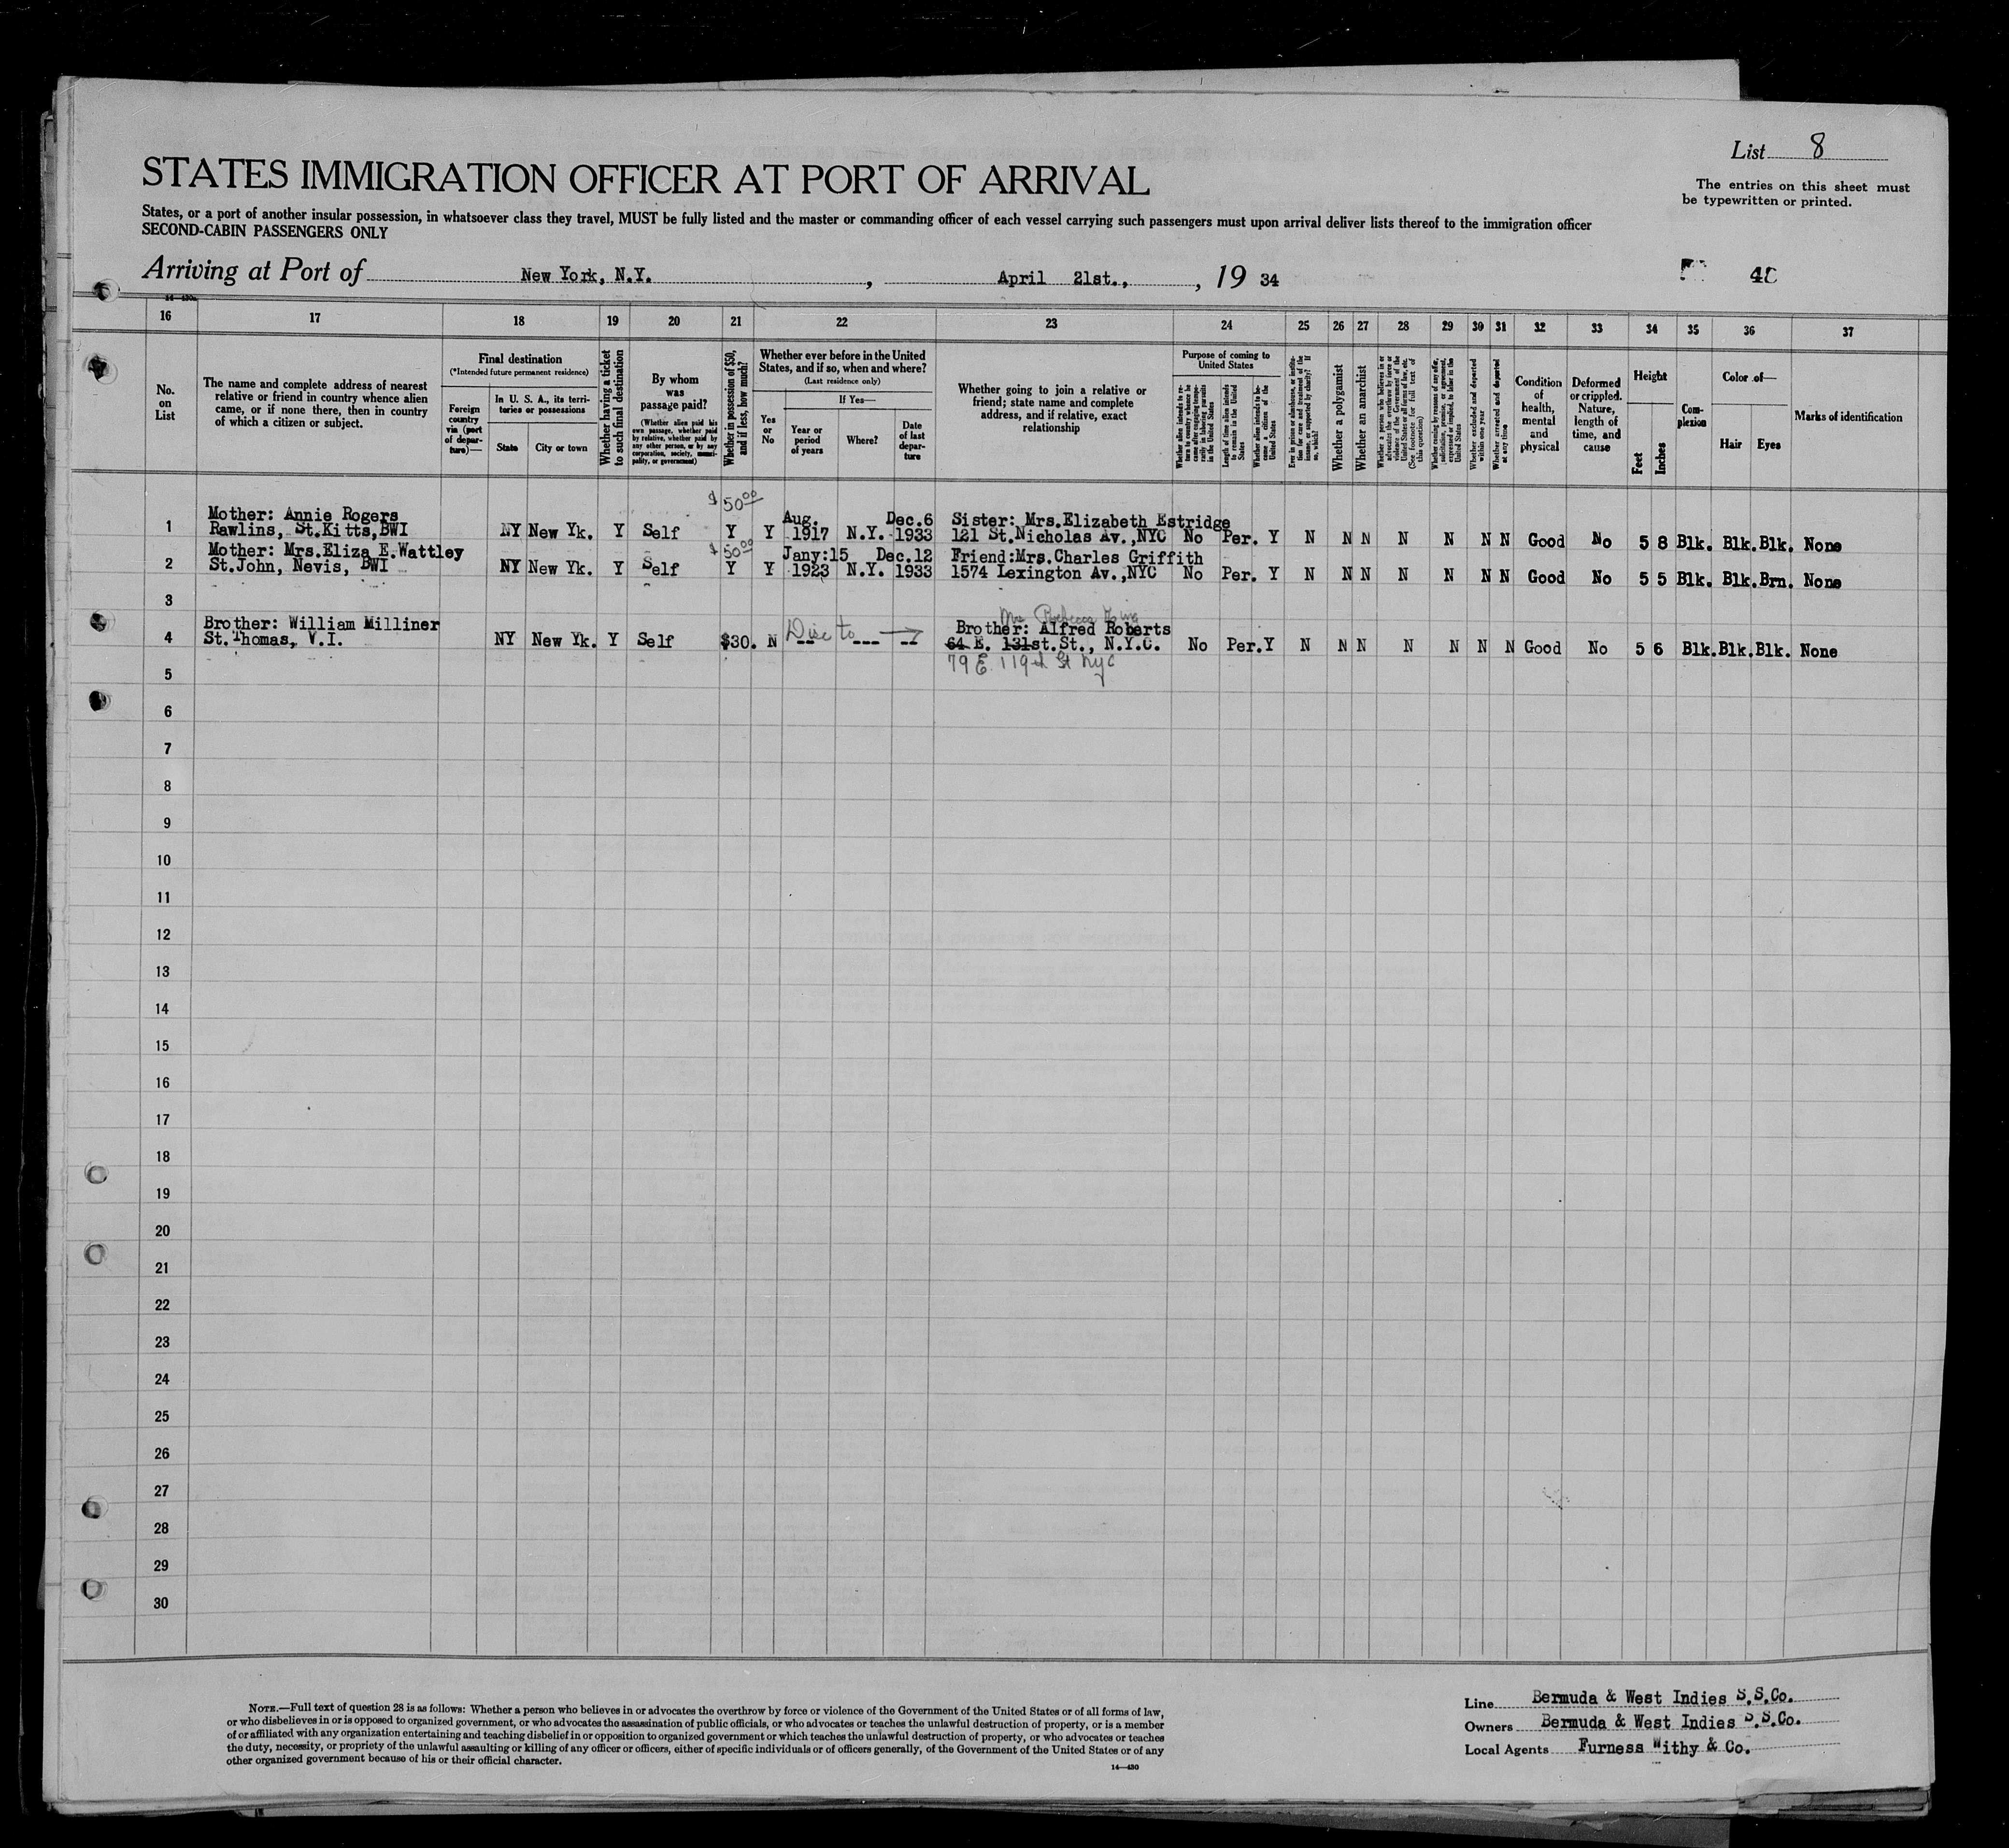 List 8
The entries on this sheet must
be typewritten or printed.
STATES IMMIGRATION OFFICER AT PORT OF ARRIVAL
States, or a port of another insular possession, in whatsoever class they travel, MUST be fully listed and the master or commanding officer of each vessel carrying such passengers must upon arrival deliver lists thereof to the immigration officer
SECOND-CABIN PASSENGERS ONLY
Arriving at Port of New York, N.Y. , April 21st., , 19 34
16 17 18 19 20 21 22 23 24 25 26 27 28 29 30 31 32 33 34 35 36 37
No. on List
The name and complete address of nearest
relative or friend in country whence alien
came, or if none there, then in country
of which a citizen or subject.
Final destination
(*Intended future permanent residence)
Foreign country via (port of departure)—
In U. S. A., its territories or possessions
State
City or town
Whether having a ticket to such final destination
By whom was passage paid?
(Whether alien paid his own passage, whether paid by relative, whether paid by any other person, or by any corporation, society, municipality, or government)
Whether in possession of $50, and if less, how much?
Whether ever before in the United
States, and if so, when and where?
(Last residence only)
Yes or No
If Yes—
Year or period of years
Where?
Date of last departure
Whether going to join a relative or
friend; state name and complete
address, and if relative, exact
relationship
Purpose of coming to United States
Whether alien intends to return to country whence he came after engaging temporarily in laboring pursuits in the United States
Length of time alien intends to remain in the United States
Whether alien intends to become a citizen of the United States
Ever in prison or almshouse, or institution for care and treatment of the insane, or supported by charity? If so, which?
Whether a polygamist
Whether an anarchist
Whether a person who believes in or advocates the overthrow by force or violence of the Government of the United States or all forms of law, etc. (See footnote for full text of this question)
Whether coming by reasons of any offer, solicitation, promise, or agreement, expressed or implied, to labor in the United States
Whether excluded and deported within one year
Whether arrested and deported at any time
Condition of health, mental and physical
Deformed or crippled. Nature, length of time, and cause
Height
Feet
Inches
Complexion
Color of—
Hair
Eyes
Marks of identification
$50.00
Mother: Annie Rogers Aug. Dec.6 Sister: Mrs.Elizabeth Estridge
1 Rawlins, St.Kitts,BWI NY New Yk. Y Self Y Y 1917 N.Y. 1933 121 St.Nicholas Av.,NYC No Per. Y N N N N N N N Good No 5 8 Blk. Blk. Blk. None
Mother: Mrs.Eliza E.Wattley $50.00 Jany:15 Dec.12 Friend:Mrs.Charles Griffith
2 St.John, Nevis, BWI NY New Yk. Y Self Y Y 1923 N.Y. 1933 1574 Lexington Av.,NYC No Per. Y N N N N N N N Good No 5 5 Blk. Blk. Brn. None
3
Brother: William Milliner Brother: Alfred Roberts
4 St.Thomas, V.I. NY New Yk. Y Self $30. N -- --- -- 64 E. 131st.St., N.Y.C. No Per. Y N N N N N N N Good No 5 6 Blk. Blk. Blk. None
79 E 119th St nyc
5
6
7
8
9
10
11
12
13
14
15
16
17
18
19
20
21
22
23
24
25
26
27
28
29
30
NOTE.—Full text of question 28 is as follows: Whether a person who believes in or advocates the overthrow by force or violence of the Government of the United States or of all forms of law,
or who disbelieves in or is opposed to organized government, or who advocates the assassination of public officials, or who advocates or teaches the unlawful destruction of property, or is a member
of or affiliated with any organization entertaining and teaching disbelief in or opposition to organized government or which teaches the unlawful destruction of property, or who advocates or teaches
the duty, necessity, or propriety of the unlawful assaulting or killing of any officer or officers, either of specific individuals or of officers generally, of the Government of the United States or of any
other organized government because of his or their official character.
14—430
Line Bermuda & West Indies S.S.Co.
Owners Bermuda & West Indies S.S.Co.
Local Agents Furness Withy & Co.